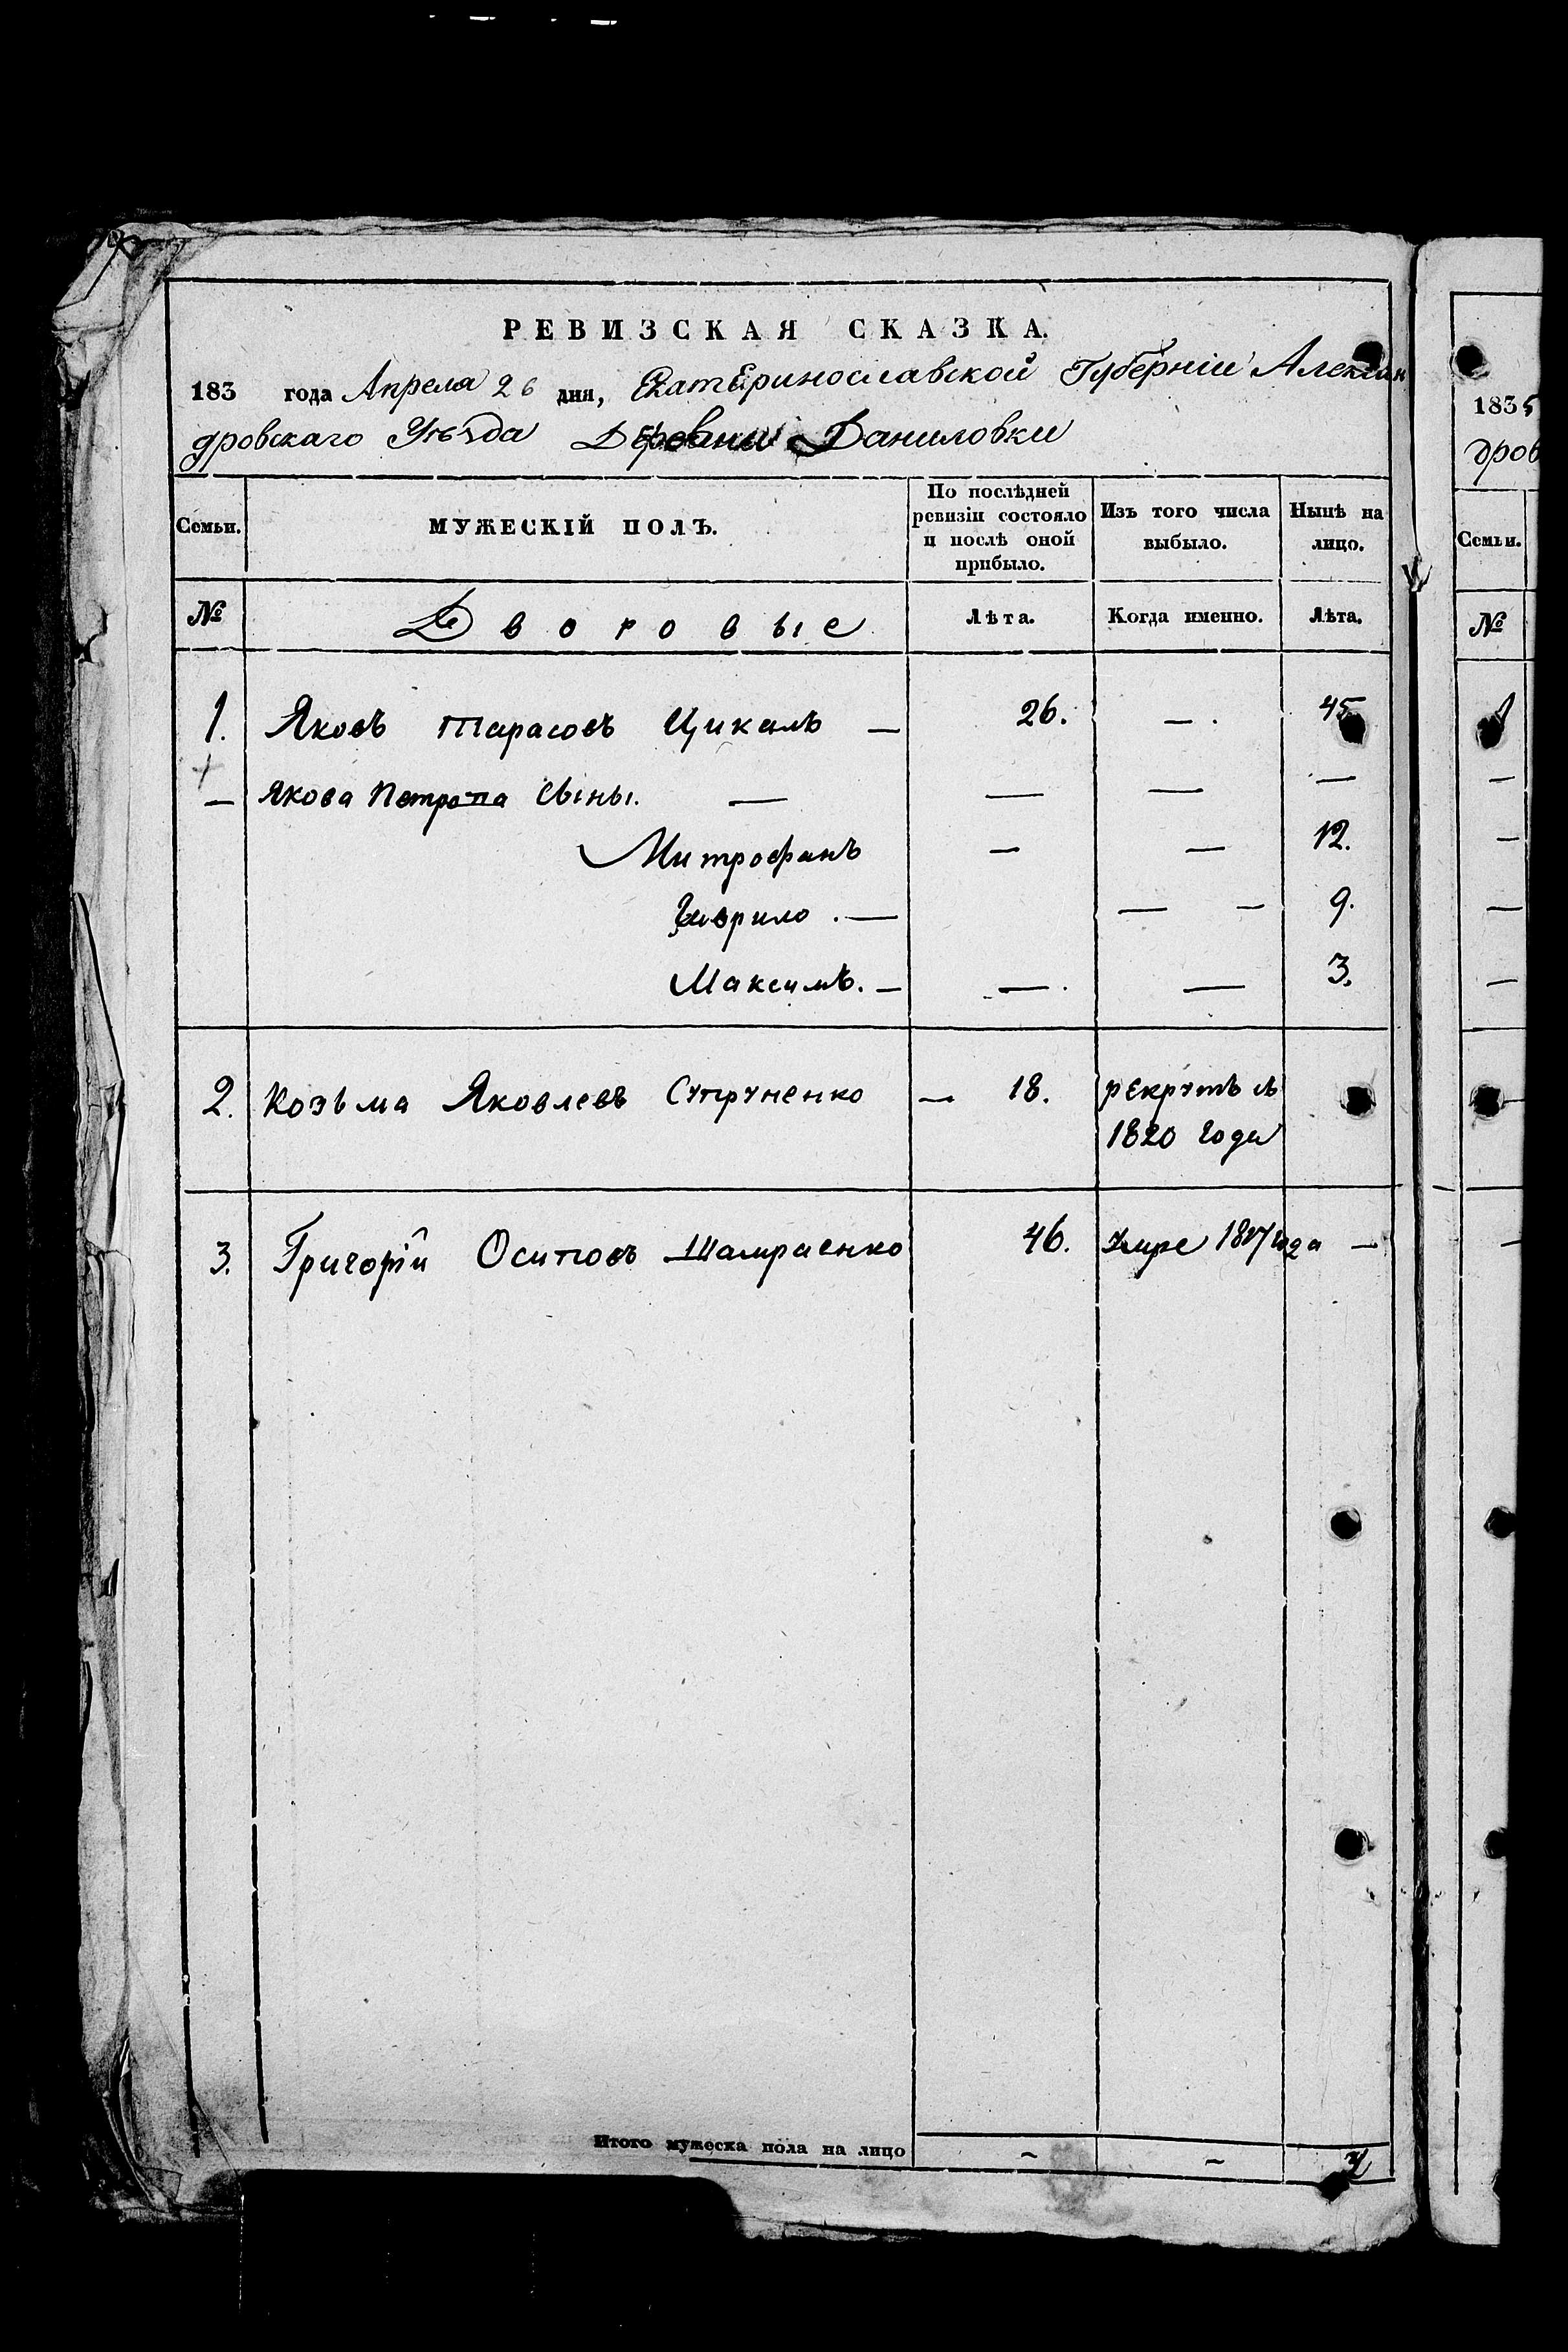 РЕВИЗСКАЯ СКАЗКА.
183 года Апреля 26 дня, Екатеринославской Губерніи Алексан
дровскаго Уѣзда Деревни Даниловки
Семьи. МУЖЕСКІЙ ПОЛЪ. По послѣдней ревизіи состояло и послѣ оной прибыло. Изъ того числа выбыло. Нынѣ на лицо.
№ Дворовые Лѣта. Когда именно. Лѣта.
1. Яковъ Тарасовъ Цикалъ — 26. — . 45
— Якова Сыны. — — — —
Митрофанъ — — 12.
Гаврило . — — — 9.
Максимъ. — — . — 3.
2. Козьма Яковлевъ Супруненко — 18. рекрутъ съ
1820 Года
3. Григорій Осиповъ Шамраенко 46. умре 1817 года —
Итого мужеска пола на лицо ~ ~ 4
1835
дров
Семьи.
№
1